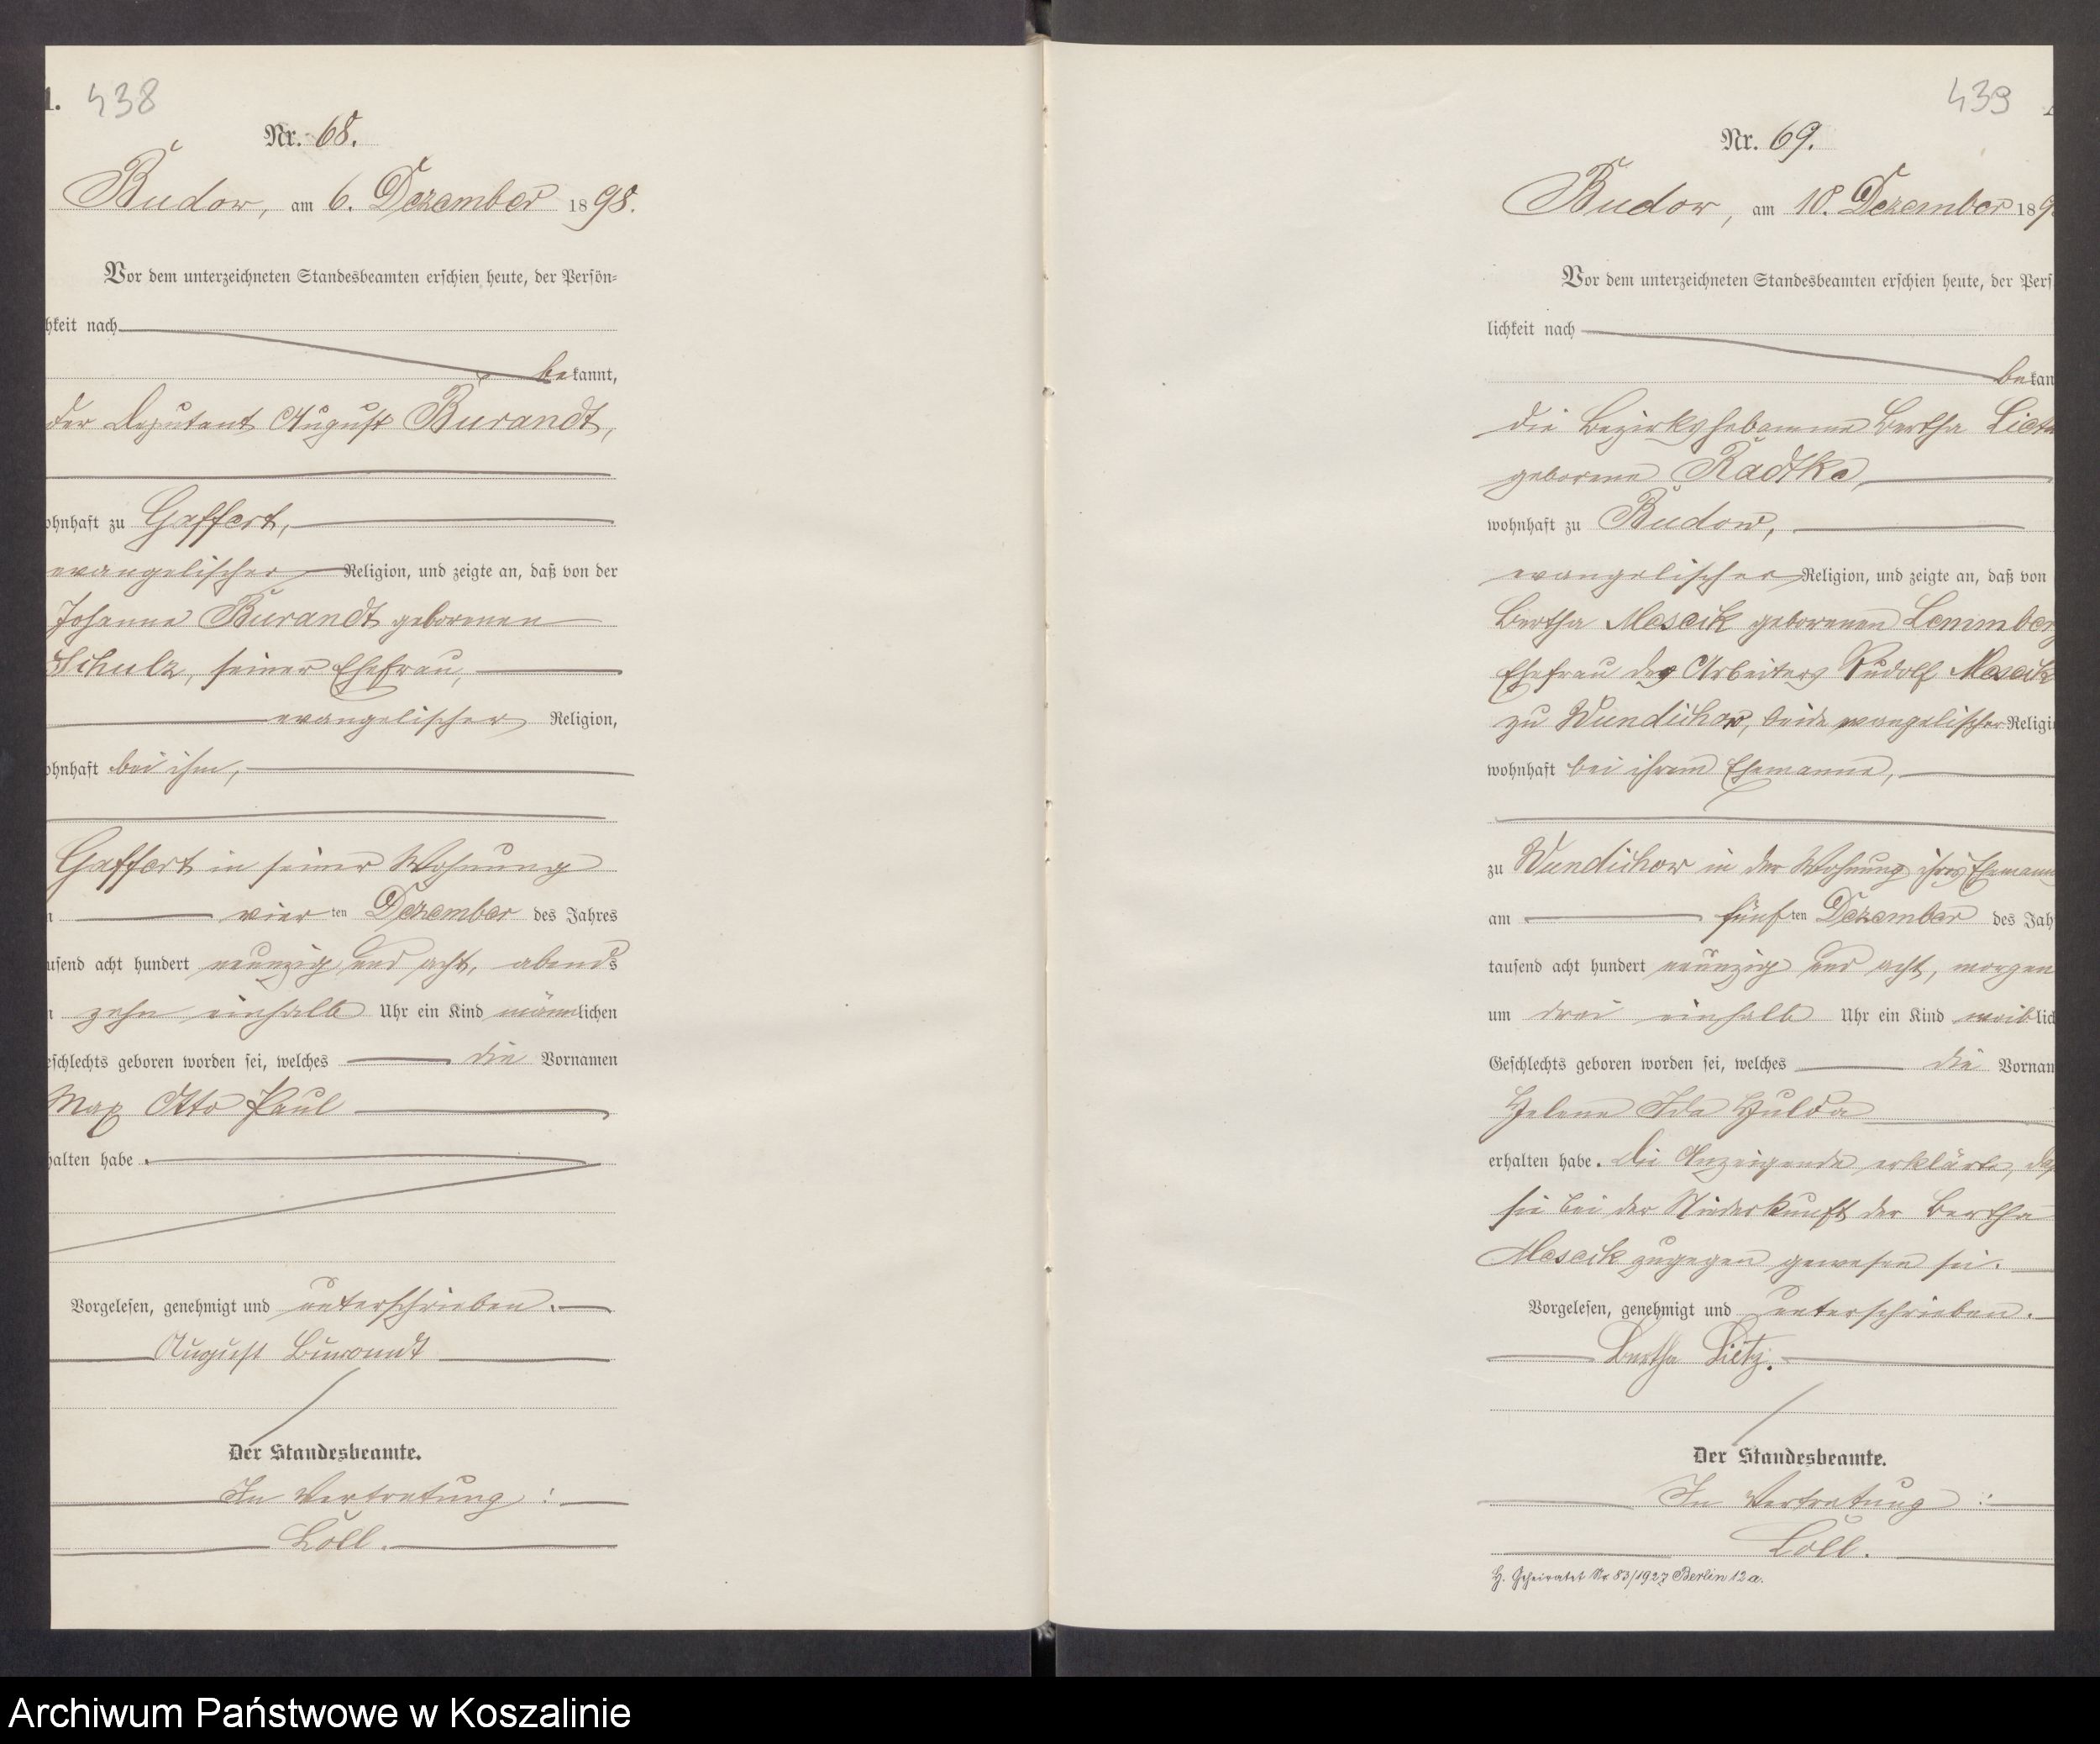 438
Nr. 68.
Budow, am 6. Dezember 1898.
Vor dem unterzeichneten Standesbeamten erschien heute, der Persön-
hkeit nach
bekannt,
der Deputant August Burandt,
ohnhaft zu Gaffert,
evangelischer Religion, und zeigte an, daß von der
Johanne Burandt geborenen
Schulz, seiner Ehefrau,
evangelischer Religion,
ohnhaft bei ihm,
Gaffert in seiner Wohnung
vierten Dezember des Jahres
usend acht hundert neunzig und acht, abends
zehn einhalb Uhr ein Kind männlichen
eschlechts geboren worden sei, welches die Vornamen
Max Otto Paul
halten habe.
Vorgelesen, genehmigt und unterschrieben.
August Burandt
Der Standesbeamte.
In Vertretung:
Löll.
439
Nr. 69.
Budow, am 10. Dezember 189
Vor dem unterzeichneten Standesbeamten erschien heute, der Pers
lichkeit nach
bekan
die Bezirkshebamme Bertha Lietz
geborene Radtke,
wohnhaft zu Budow,
evangelischer Religion, und zeigte an, daß von
Bertha Mescik geborenen Lemmberg
Ehefrau des Arbeiters Rudolf Mescik
zu Wundichow, beide evangelischer Religi
wohnhaft bei ihrem Ehemanne,
zu Wundichow in der Wohnung ihres Ehemann
am fünften Dezember des Jah
tausend acht hundert neunzig und acht, morgen
um drei einhalb Uhr ein Kind weiblic
Geschlechts geboren worden sei, welches die Vornam
Helene Ida Hulda
erhalten habe. Die Anzeigende erklärte, daß
sie bei der Niederkunft der Bertha
Mescik zugegen gewesen sei.
Vorgelesen, genehmigt und unterschrieben.
Bertha Lietz.
Der Standesbeamte.
In Vertretung:
Löll.
H. Geheiratet Nr 83/1927 Berlin 12a.
Archiwum Państwowe w Koszalinie